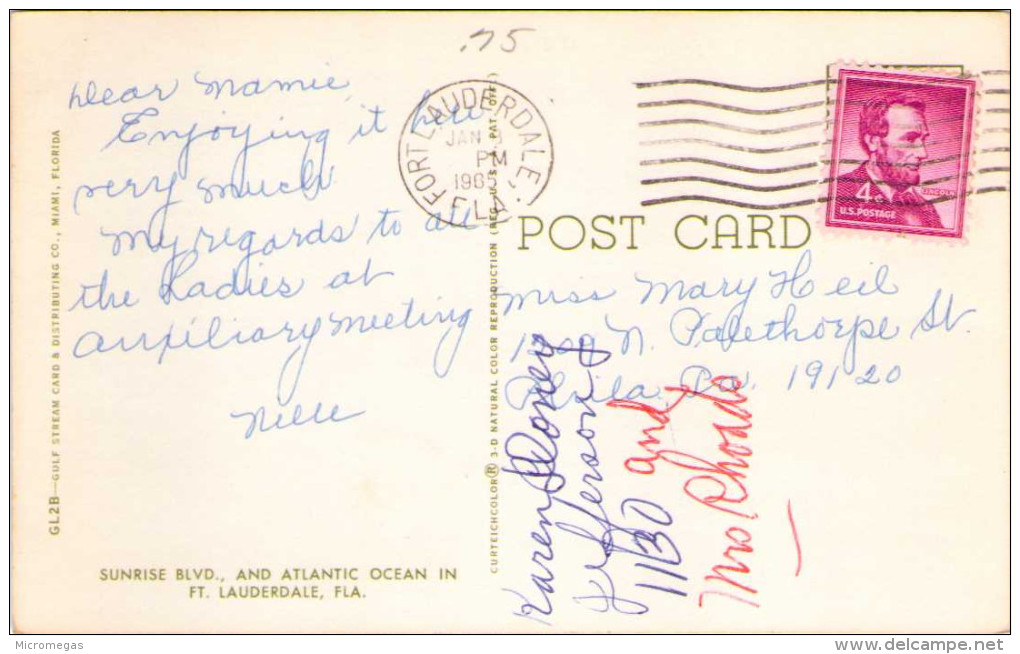 .75
Dear Mamie,
Enjoying it here
very much
My regards to all
the Ladies at
auxiliary meeting
Nell
FORT LAUDERDALE, FLA.
JAN
PM
1965
4¢
LINCOLN
U.S. POSTAGE
POST CARD
Miss Mary Heil
N. Palethorpe St.
Phila. Pa. 19120
Karen Stoney
Jefferson
11/30 and
Mrs Rhoads
GL2B—GULF STREAM CARD & DISTRIBUTING CO., MIAMI, FLORIDA
CURTEICHCOLOR® 3-D NATURAL COLOR REPRODUCTION (REG. U.S. PAT. OFF.)
SUNRISE BLVD., AND ATLANTIC OCEAN IN
FT. LAUDERDALE, FLA.
Micromegas
delcampe.net